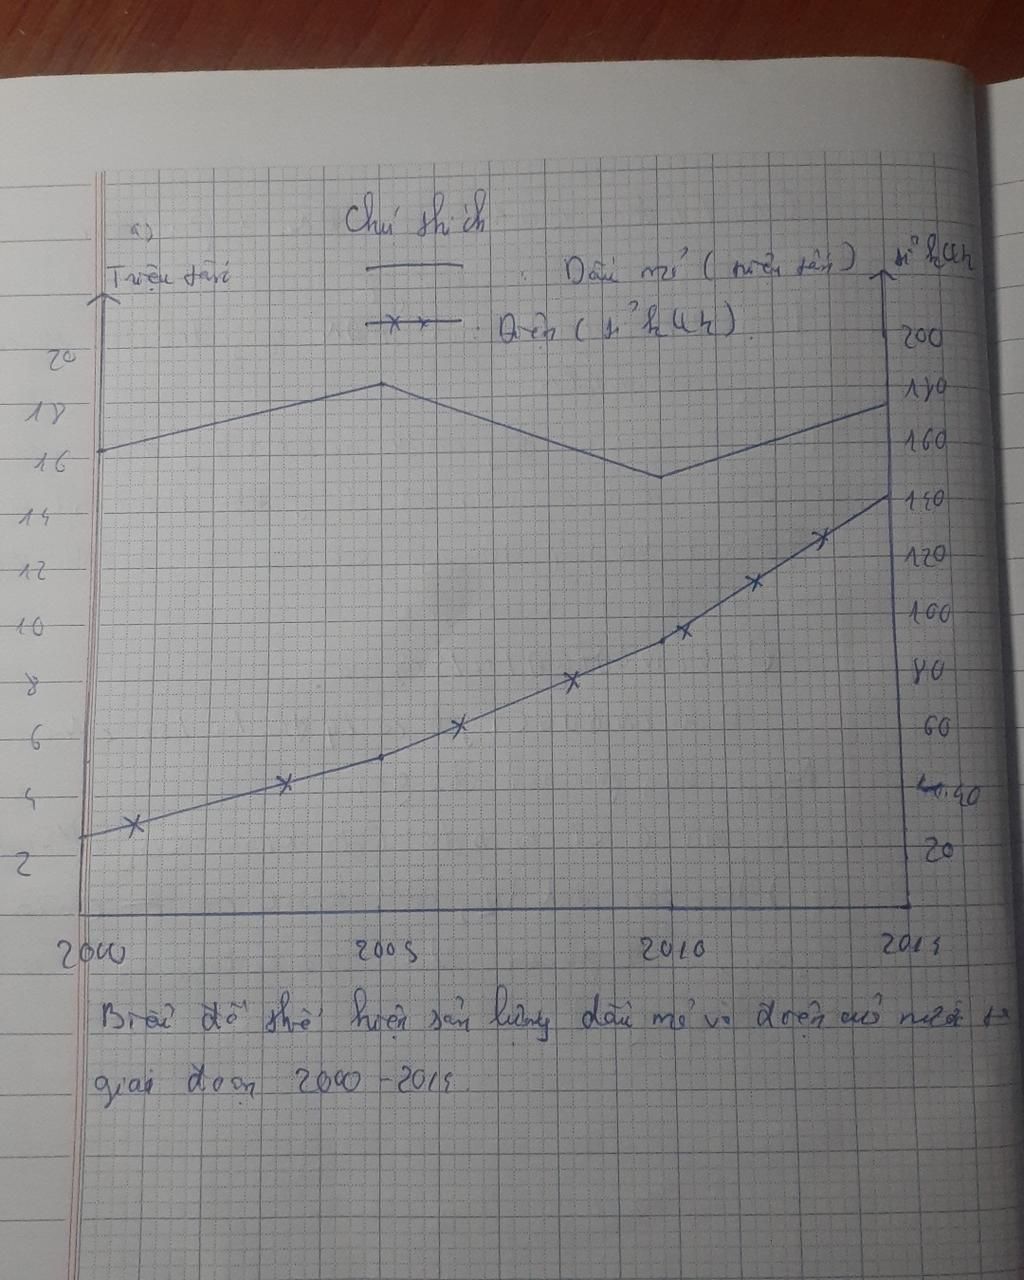 a)
Chú thích
Triệu tấn
: Dầu mỏ ( triệu tấn )
tỉ kWh
: Điện ( tỉ kWh )
20 200
18 180
16 160
14 140
12 120
10 100
8 80
6 60
4 40
2 20
2000 2005 2010 2014
Biểu đồ thể hiện sản lượng dầu mỏ và điện của nước ta
giai đoạn 2000 - 2014